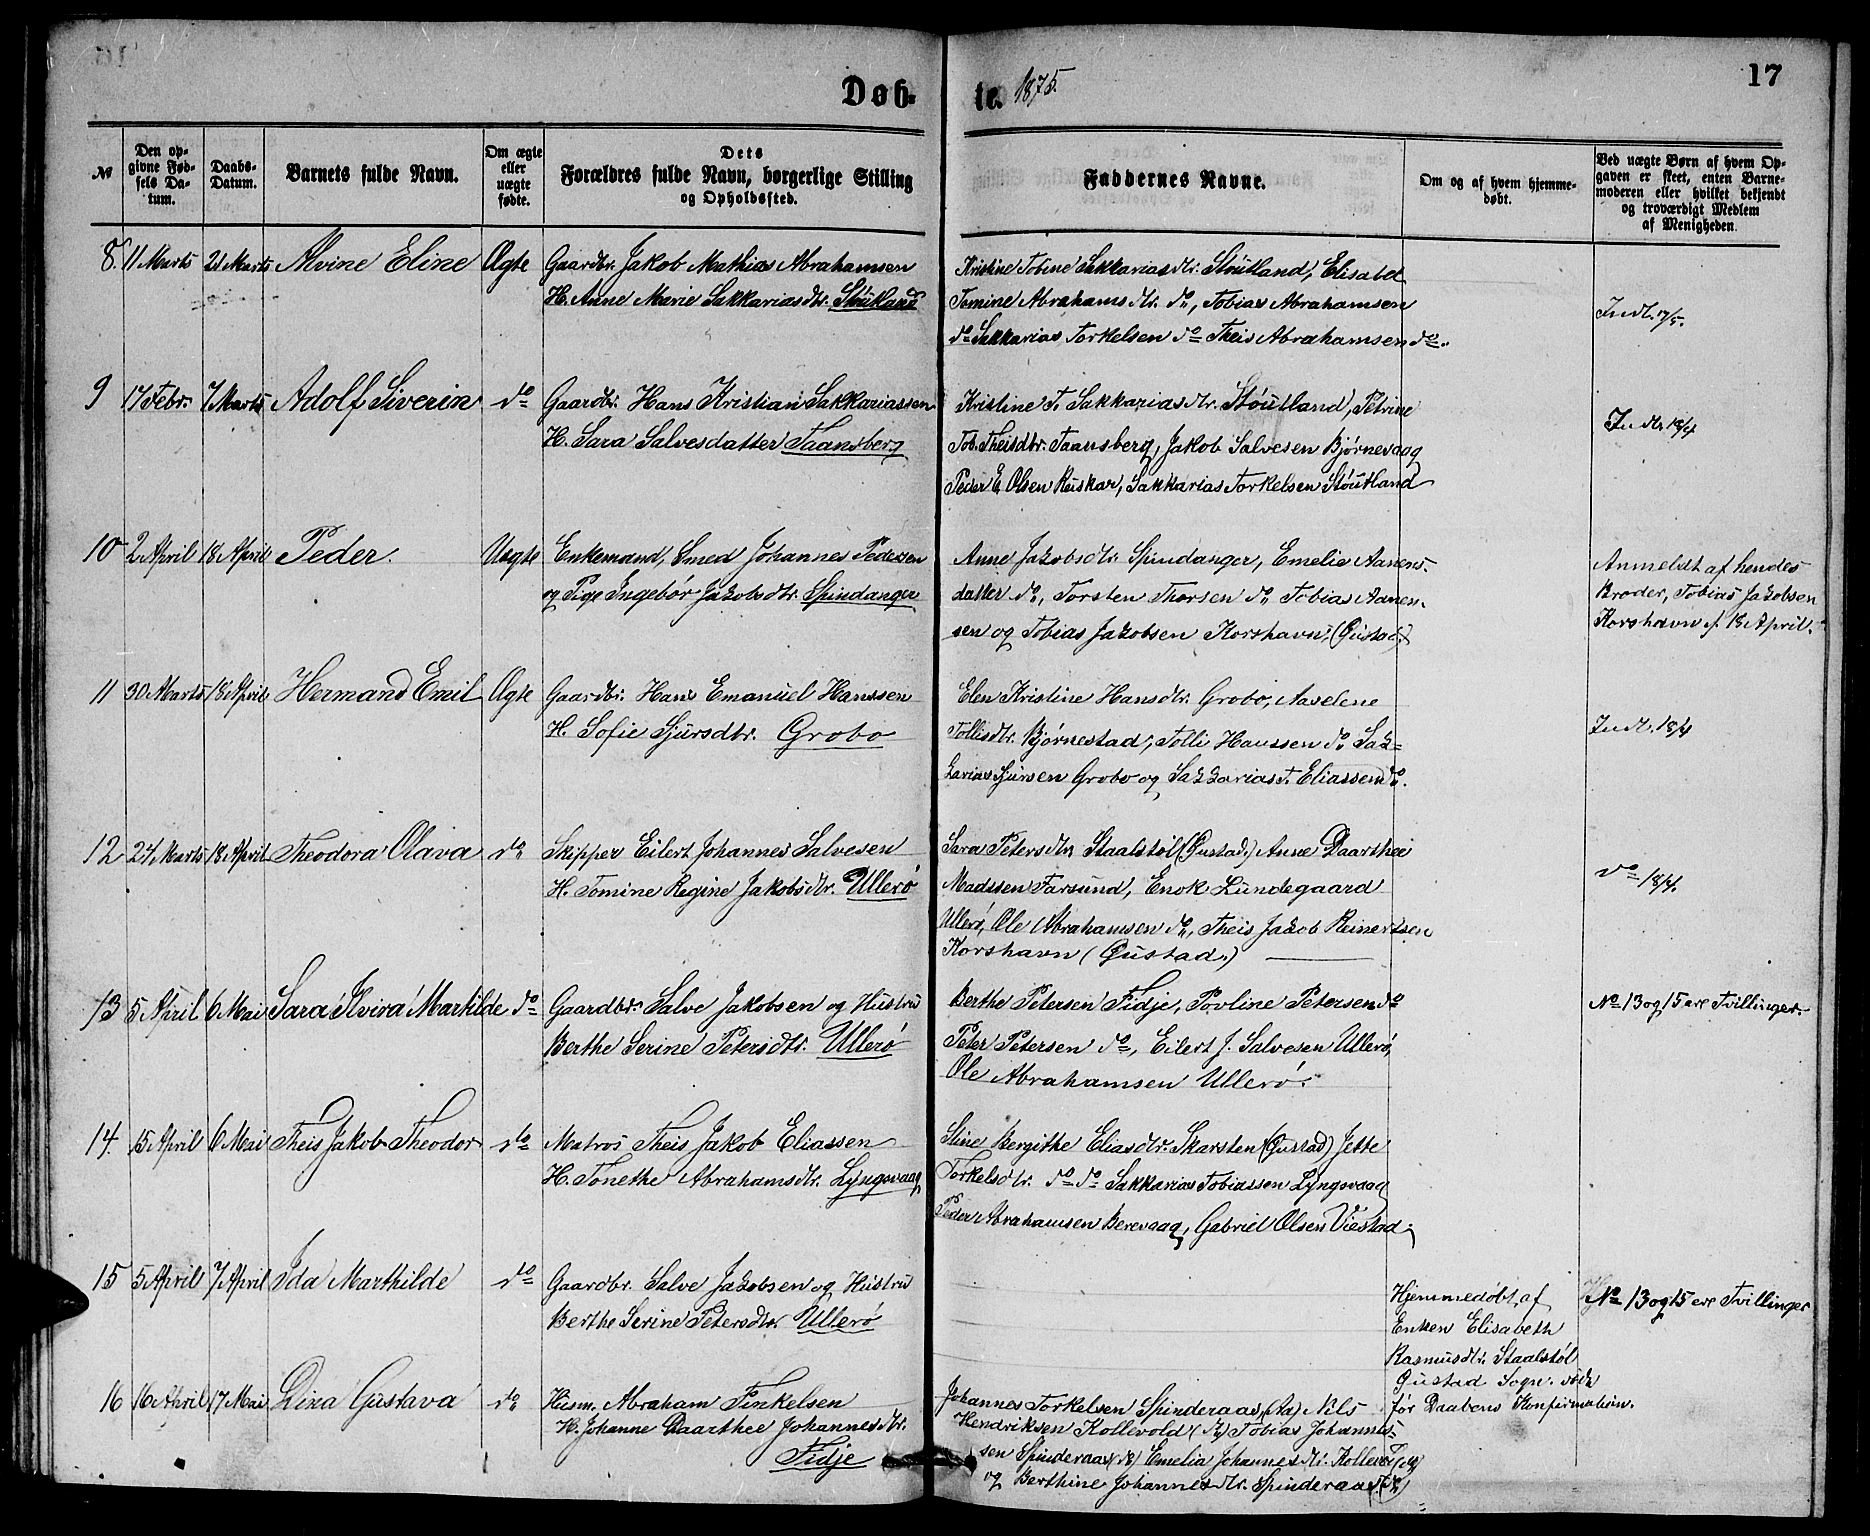 17
Døb- te. 1875.
№
Den op-
givne Fød-
sels Da-
tum.
Daabs-
Datum.
Barnets fulde Navn.
Om ægte
eller
uægte
fødte.
Dets
Forældres fulde Navn, borgerlige Stilling
og Opholdssted.
Faddernes Navne.
Om og af hvem hjemme-
døbt.
Ved uægte Børn af hvem Op-
gaven er skeet, enten Barne-
moderen eller hvilket bekjendt
og troværdigt Medlem
af Menigheden.
8. 11 Marts 21 Marts Alvine Eline Ægte
Gaardbr. Jakob Mathias Abrahamsen
H. Anne Marie Sakkariasdtr. Støutland
Kristine Tobine Sakkariasdtr. Støutland, Elisabet
Tomine Abrahamsdtr. do, Tobias Abrahamsen
do Sakkarias Torkelsen do Theis Abrahamsen do.
Indt. 17/5.
9 17 Febr. 7 Marts Adolf Siverin do
Gaardbr. Hans Kristian Sakkariassen
H. Sara Salvesdatter Taansberg
Kristine T. Sakkariasdtr. Støutland, Petrine
Tob. Theisdtr. Taansberg, Jakob Salvesen Bjørnevaag
Peder E. Olsen Reiskar, Sakkarias Torkelsen Støutland
Indt. 18/4
10 2 April 18 April Peder. Uægte
Enkemand, Smed Johannes Pedersen
og Pige Ingebør Jakobsdtr. Spindanger
Anne Jakobsdtr. Spindanger, Emelie Aanens-
datter do, Torsten Thorsen do, Tobias Aanen-
sen og Tobias Jakobsen Korshavn, (Øustad.)
Anmeldt af hendes
Broder, Tobias Jakobsen
Korshavn d. 18 April.
11 30 Marts 18 April Hermand Emil Ægte
Gaardbr. Hans Emanuel Hanssen
H. Sofie Sjursdtr. Grobo
Elen Kristine Hansdtr. Grobo, Aaselene
Tollisdtr. Bjørnestad, Tolli Hanssen do, Sak-
karias Sjursen Grobo og Sakkarias T. Eliassen do.
Indt. 18/4
12 24 Marts 18 April Theodora Olava do
Skipper Eilert Johannes Salvesen
H. Tomine Regine Jakobsdtr. Ullerø
Sara Petersdtr. Staalstøl (Øustad.) Anne Daarthea
Madssen Farsund, Enok Lundegaard
Ullerø, Ole Abrahamsen do, Theis Jakob Reinertsen
Korshavn (Øustad.)
do 18/4.
13 5 April 6 Mai Sara Alvira Martilde do
Gaardbr. Salve Jakobsen og Hustru
Berthe Serine Petersdtr. Ullerø
Berthe Petersen Fidje, Povline Petersen do
Peter Petersen do, Eilert J. Salvesen Ullerø,
Ole Abrahamsen Ullerø.
No 13 og 15 ere Tvillinger.
14. 15 April 6 Mai Theis Jakob Theodor do
Matros Theis Jakob Eliassen
H. Tonethe Abrahamsdtr. Lyngsvaag
Stine Bergithe Eliasdtr. Skarsten (Øustad) Jette
Torkelsdtr. do do Sakkarias Tobiassen Lyngsvaag
Peder Abrahamsen Berevaag, Gabriel Olsen Viestad.
15 5 April 7 April Ida Marthilde do
Gaardbr. Salve Jakobsen og Hustru
Berthe Serine Petersdtr. Ullerø
Hjemmedøbt af
Enken Elisabeth
Rasmusdtr. Staalstøl
Øustad Sogn. døde
før Daabens Konfirmation.
No 13 og 15 ere Tvillinger
16 16 April 17 Mai Dina Gustava do
Husm. Abraham Tinkelsen
H. Johanne Daarthee Johannesdtr.
Fidje
Johannes Torkelsen Spinderaas, Nils
Hendriksen Kollevold Tobias Johannes-
sen Spinderaas Emelia Johannesdtr.
og Berthine Johannesdtr. Spinderaas